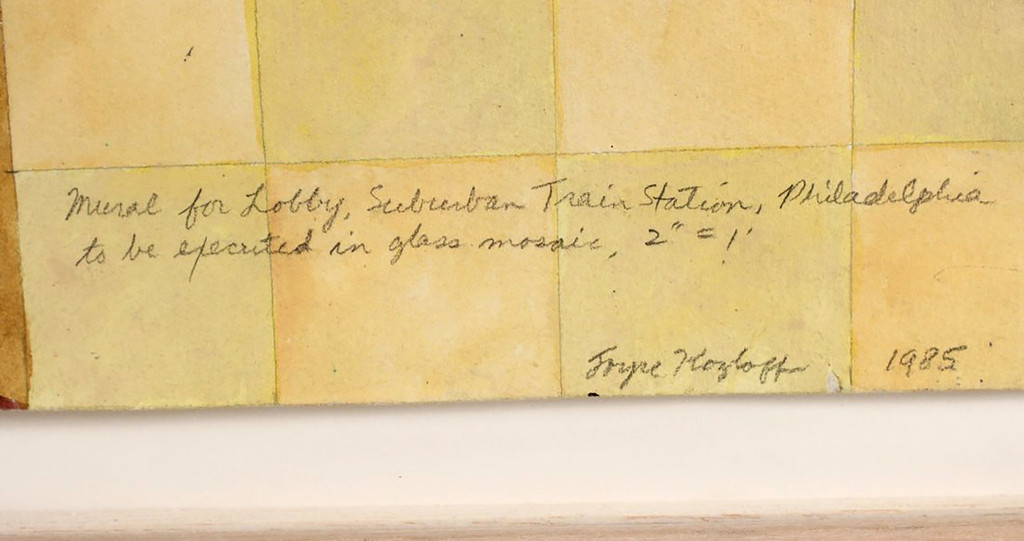 Mural for Lobby, Suburban Train Station, Philadelphia
to be executed in glass mosaic, 2" = 1'
Joyce Kozloff 1985